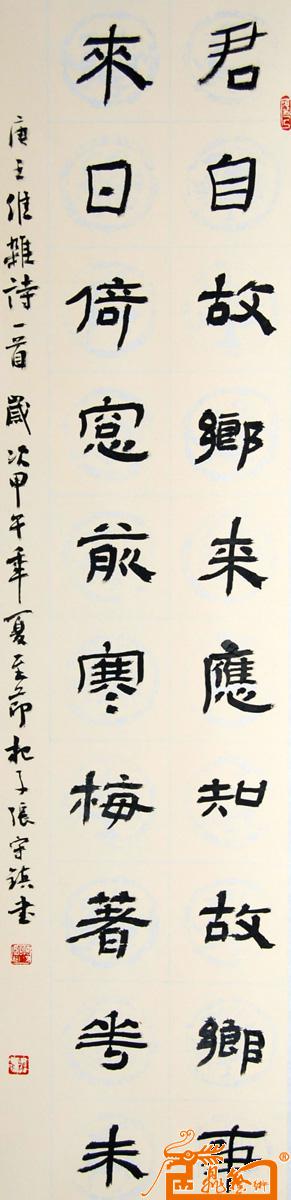 君自故鄉来應知故鄉事
來日倚窓前寒梅著花未
唐王維雜詩一首 歲次甲午年夏至節 杞子張守鎮书